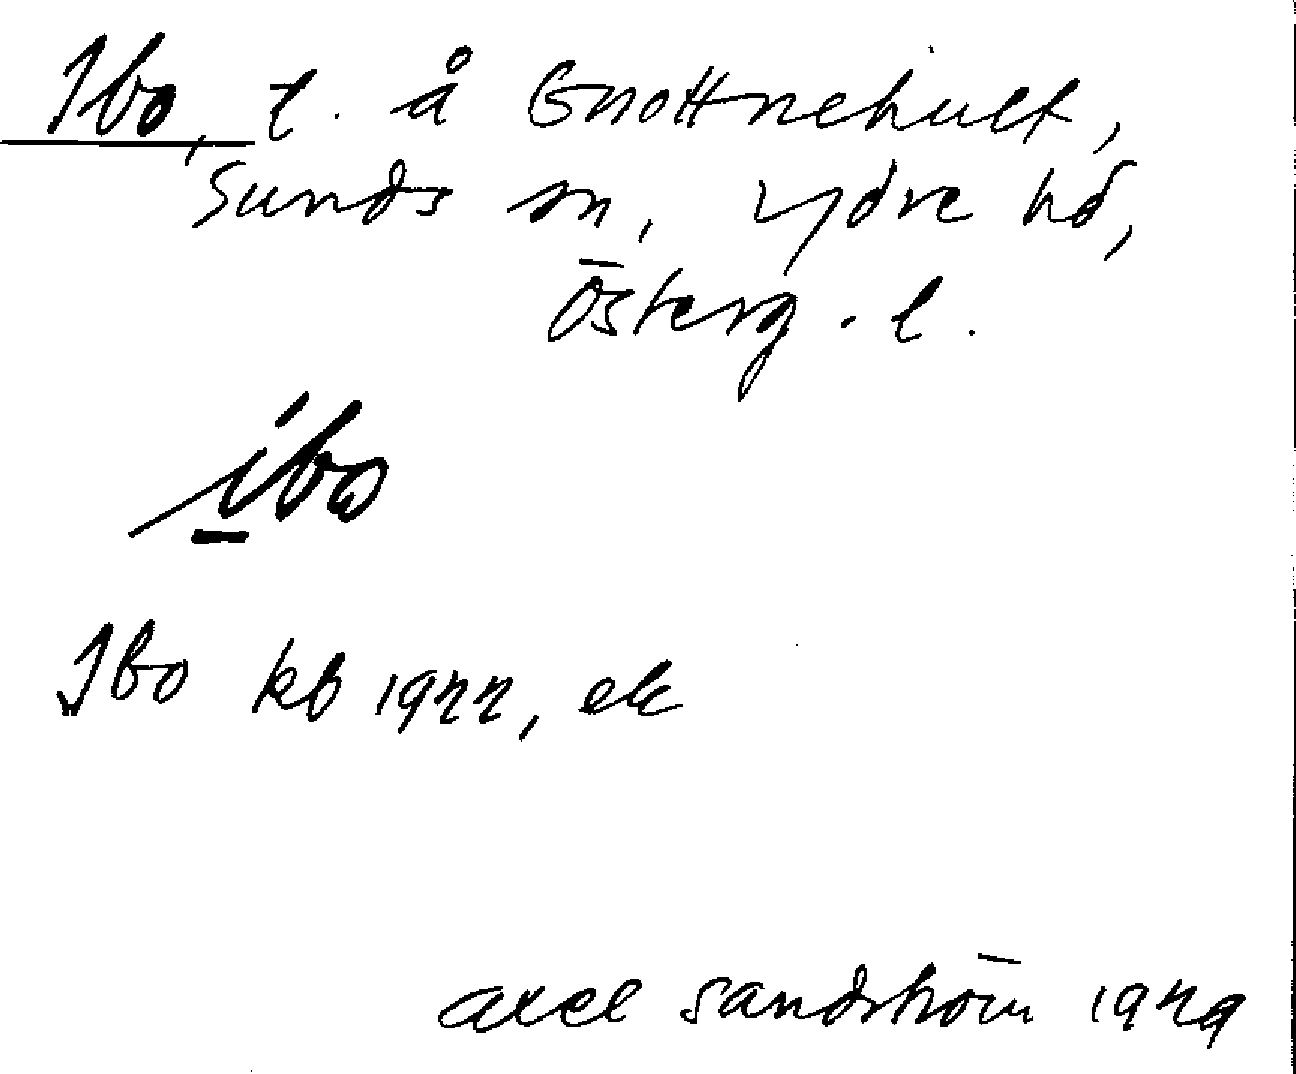 Ibo, t. å Gnottnehult,
Sunds sn, Ydre hd,
Österg. l.
ibo
Ibo kb 1922, ek
Axel Sandström 1929